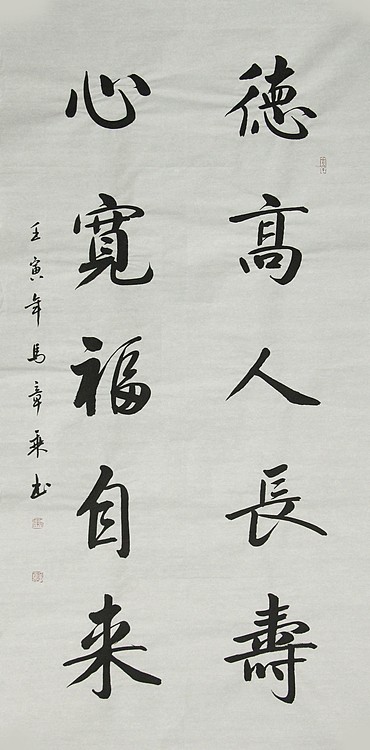 德高人長壽
心寬福自來
壬寅年馬章乘书